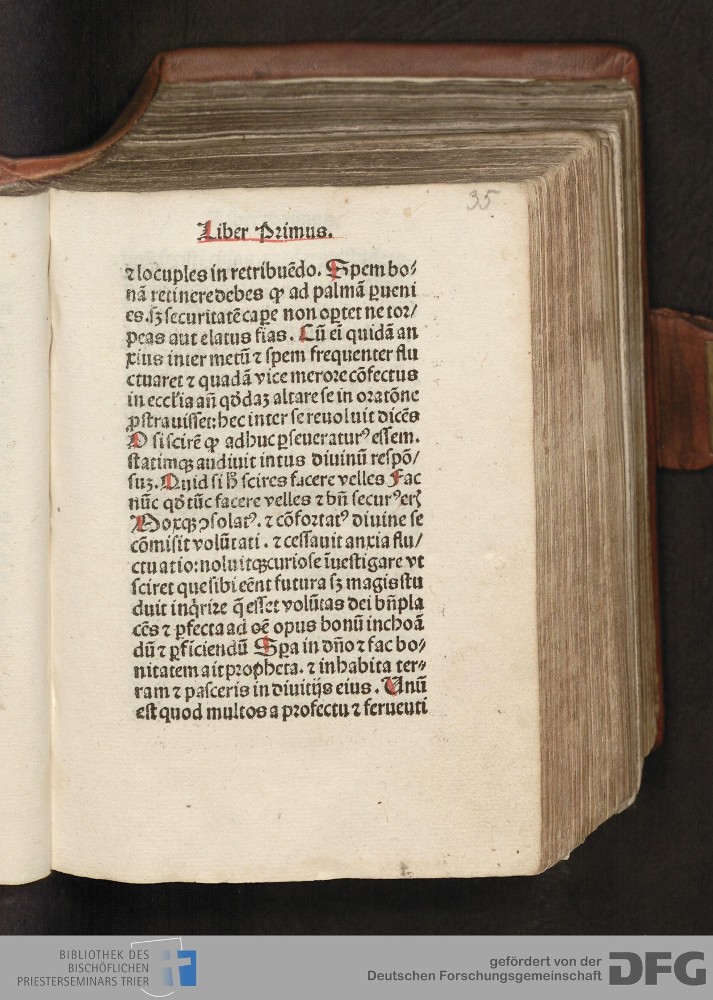 35
Liber Primus.
⁊ locuples in retribuẽdo. Spem bo⸗
nã retinere debes ꝙ ad palmã ꝑueni
es. sꝫ securitatẽ caꝑe non oꝑtet ne tor/
peas aut elatus fias. Cũ eĩ quidã an
xius inter metũ ⁊ spem frequenter flu
ctuaret ⁊ quadã vice merore cõfectus
in eccl'ia añ qõdaꝫ altare se in oratõne
ꝓstrauisset: hec inter se reuoluit dicẽs
O si scirẽ ꝙ adhuc ꝑseueraturꝰ essem.
statimqꝫ audiuit intus diuinũ respõ/
suꝫ. Quid si h̃ scires facere velles Fac
nũc qõ tũc facere velles ⁊ bñ securꝰ erꝭ
Moxqꝫ ꝯsolatꝰ. ⁊ cõfortatꝰ diuine se
cõmisit volũtati. ⁊ cessauit anxia flu/
ctuatio: noluitqꝫ curiose ĩuestigare vt
sciret que sibi eẽnt futura sꝫ magis stu
duit inq̇rire q̃ esset volũtas dei bñpla
cẽs ⁊ ꝑfecta ad oẽ opus bonũ inchoã
dũ ⁊ ꝑficiendũ Spa in dño ⁊ fac bo⸗
nitatem ait propheta. ⁊ inhabita ter⸗
ram ⁊ pasceris in diuitijs eius. Unũ
est quod multos a profectu ⁊ feruenti
BIBLIOTHEK DES
BISCHÖFLICHEN
PRIESTERSEMINARS TRIER
gefördert von der
Deutschen Forschungsgemeinschaft
DFG